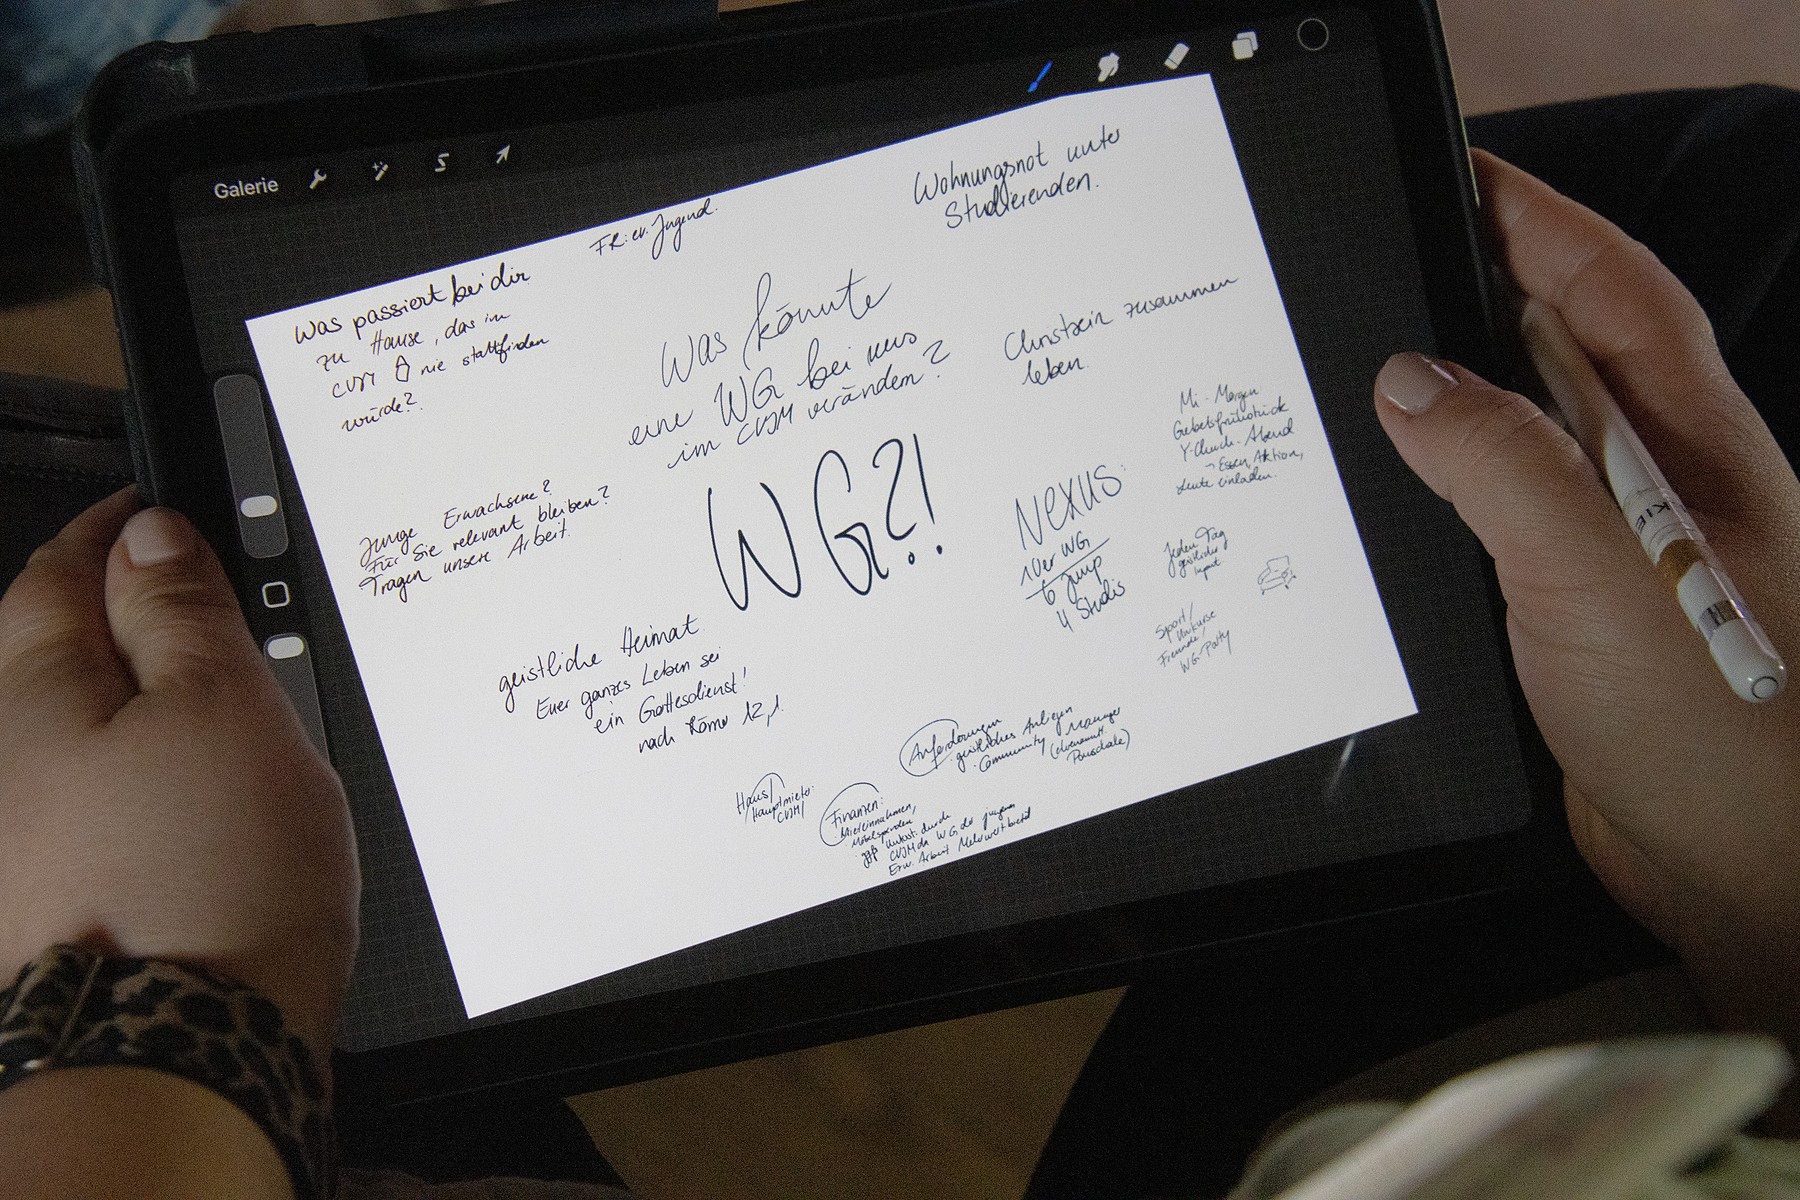 Galerie
FR: ev. Jugend.
Wohnungsnot unter
Studierenden.
Was passiert bei dir
zu Hause, das im
CVJM nie stattfinden
würde?
Was könnte
eine WG bei uns
im CVJM verändern?
Christsein zusammen
leben.
WG?!
Mi-Morgen
Gebetsfrühstück
Y-Church-Abend
→ Essen, Aktion,
Leute einladen.
Junge Erwachsene?
Für Sie relevant bleiben?
Tragen unsere Arbeit.
NEXUS:
10er WG
6 Jump
4 Studis
Jeden Tag
geistlicher
Input
Sport/
Unikurse
Freunde/
WG-Party
geistliche Heimat
Euer ganzes Leben sei
ein Gottesdienst!
nach Römer 12,1
Anforderungen
· geistliches Anliegen
· Community Manager
(ehrenamtl.
Pauschale)
Haus/
Hauptmieter:
CVJM
Finanzen:
· Mieteinnahmen,
· Möbelspenden
· ggf. durch
CVJM da WG der jungen
Erw. Arbeit Mehrwert
KIE